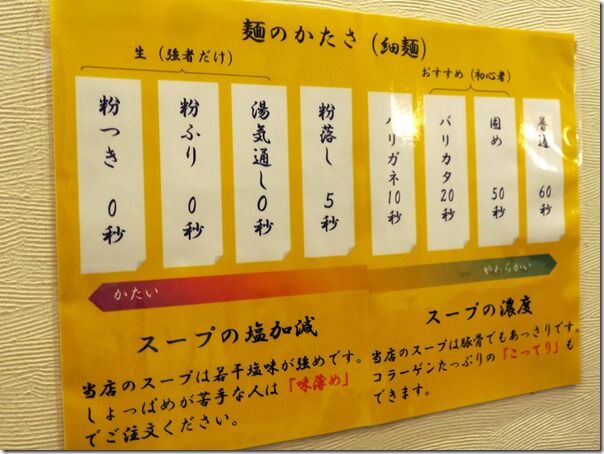 麺のかたさ（細麺）
生（強者だけ）
おすすめ（初心者）
粉つき 0秒
粉ふり 0秒
湯気通し 0秒
粉落し 5秒
ハリガネ 10秒
バリカタ 20秒
固め 50秒
普通 60秒
かたい
やわらかい
スープの塩加減
当店のスープは若干塩味が強めです。
しょっぱめが苦手な人は「味薄め」
でご注文ください。
スープの濃度
当店のスープは豚骨でもあっさりです。
コラーゲンたっぷりの「こってり」も
できます。